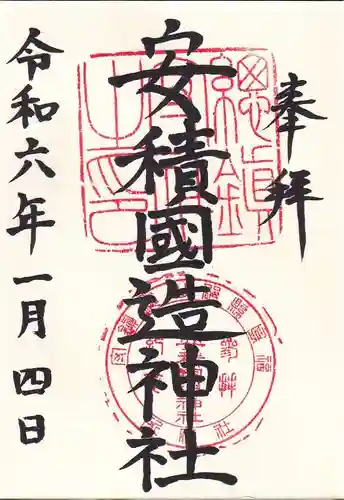 奉拜
安積國造神社
令和六年一月四日